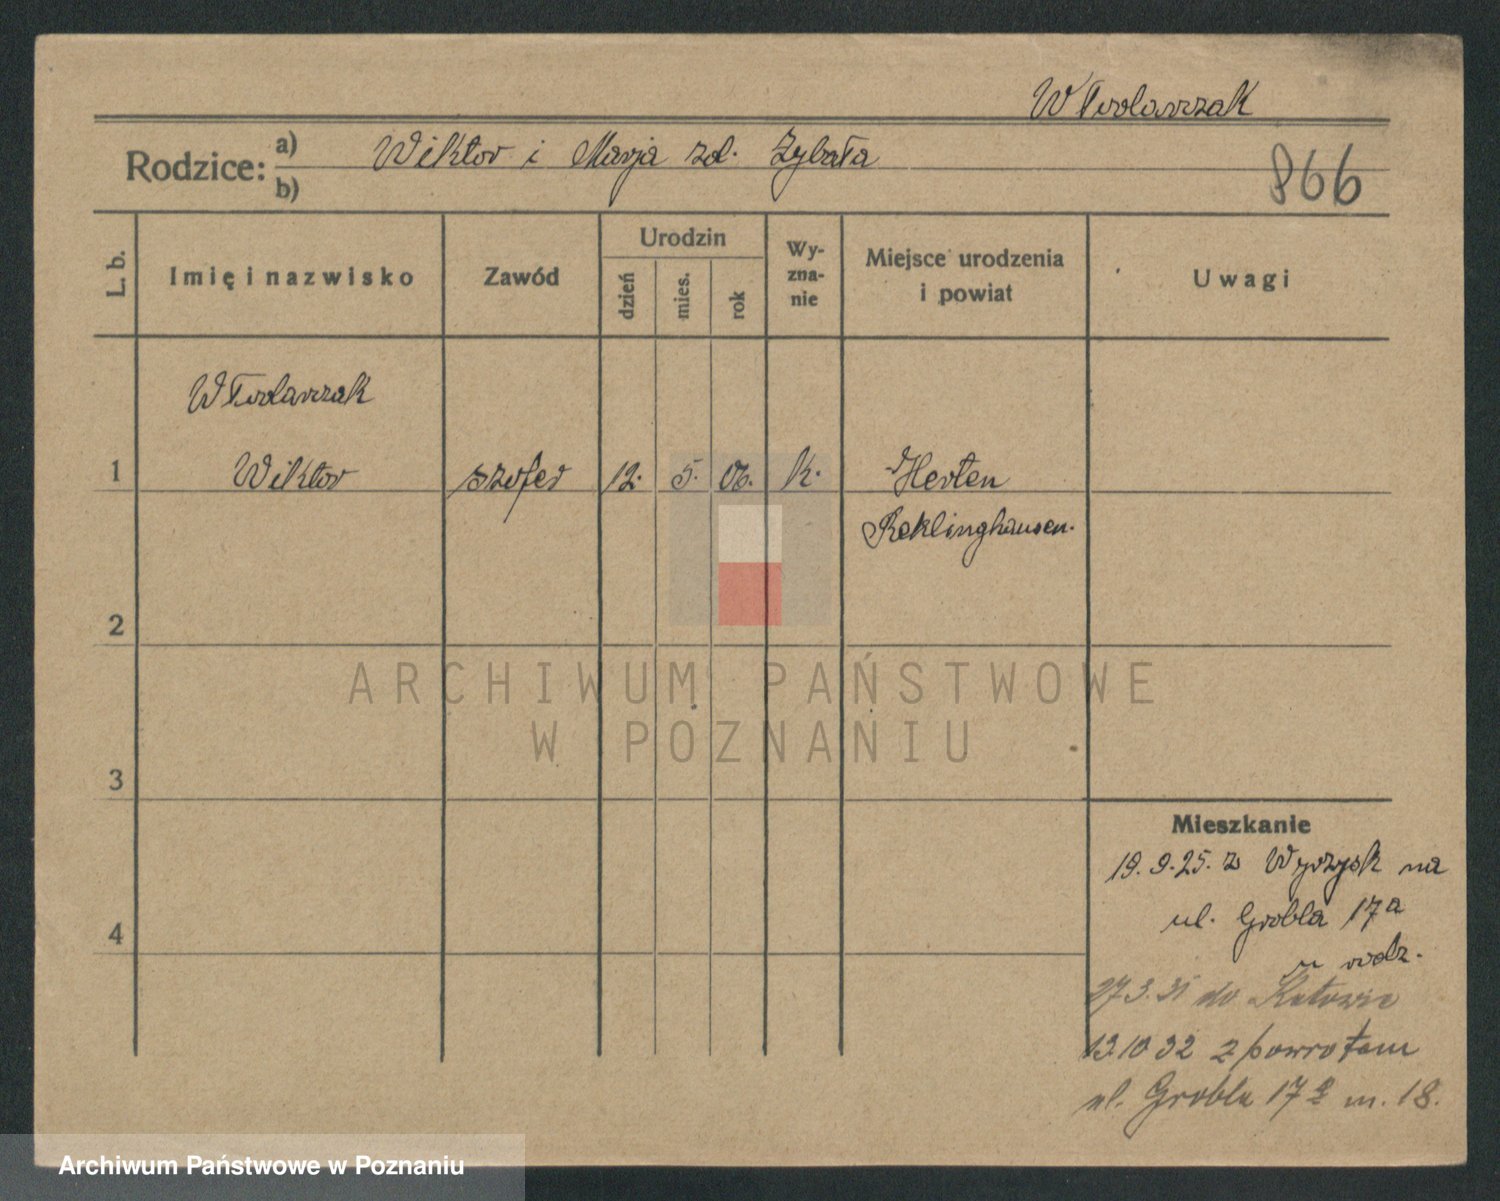 Włodarczak
Rodzice: a) Wiktor i Marja zd. Zybała
b)
866
L. b.
Imię i nazwisko
Zawód
Urodzin
dzień
mies.
rok
Wy-
zna-
nie
Miejsce urodzenia
i powiat
Uwagi
Włodarczak
1 Wiktor szofer 12. 5. 06. k. Herten
Reklinghausen.
2
3
4
Mieszkanie
19.9.25. z Wyrzysk na
ul. Grobla 17a
u rodz.
27.3.31 do Katowic
13 10 32 z powrotem
ul. Grobla 17a m. 18.
ARCHIWUM PAŃSTWOWE
W POZNANIU
Archiwum Państwowe w Poznaniu